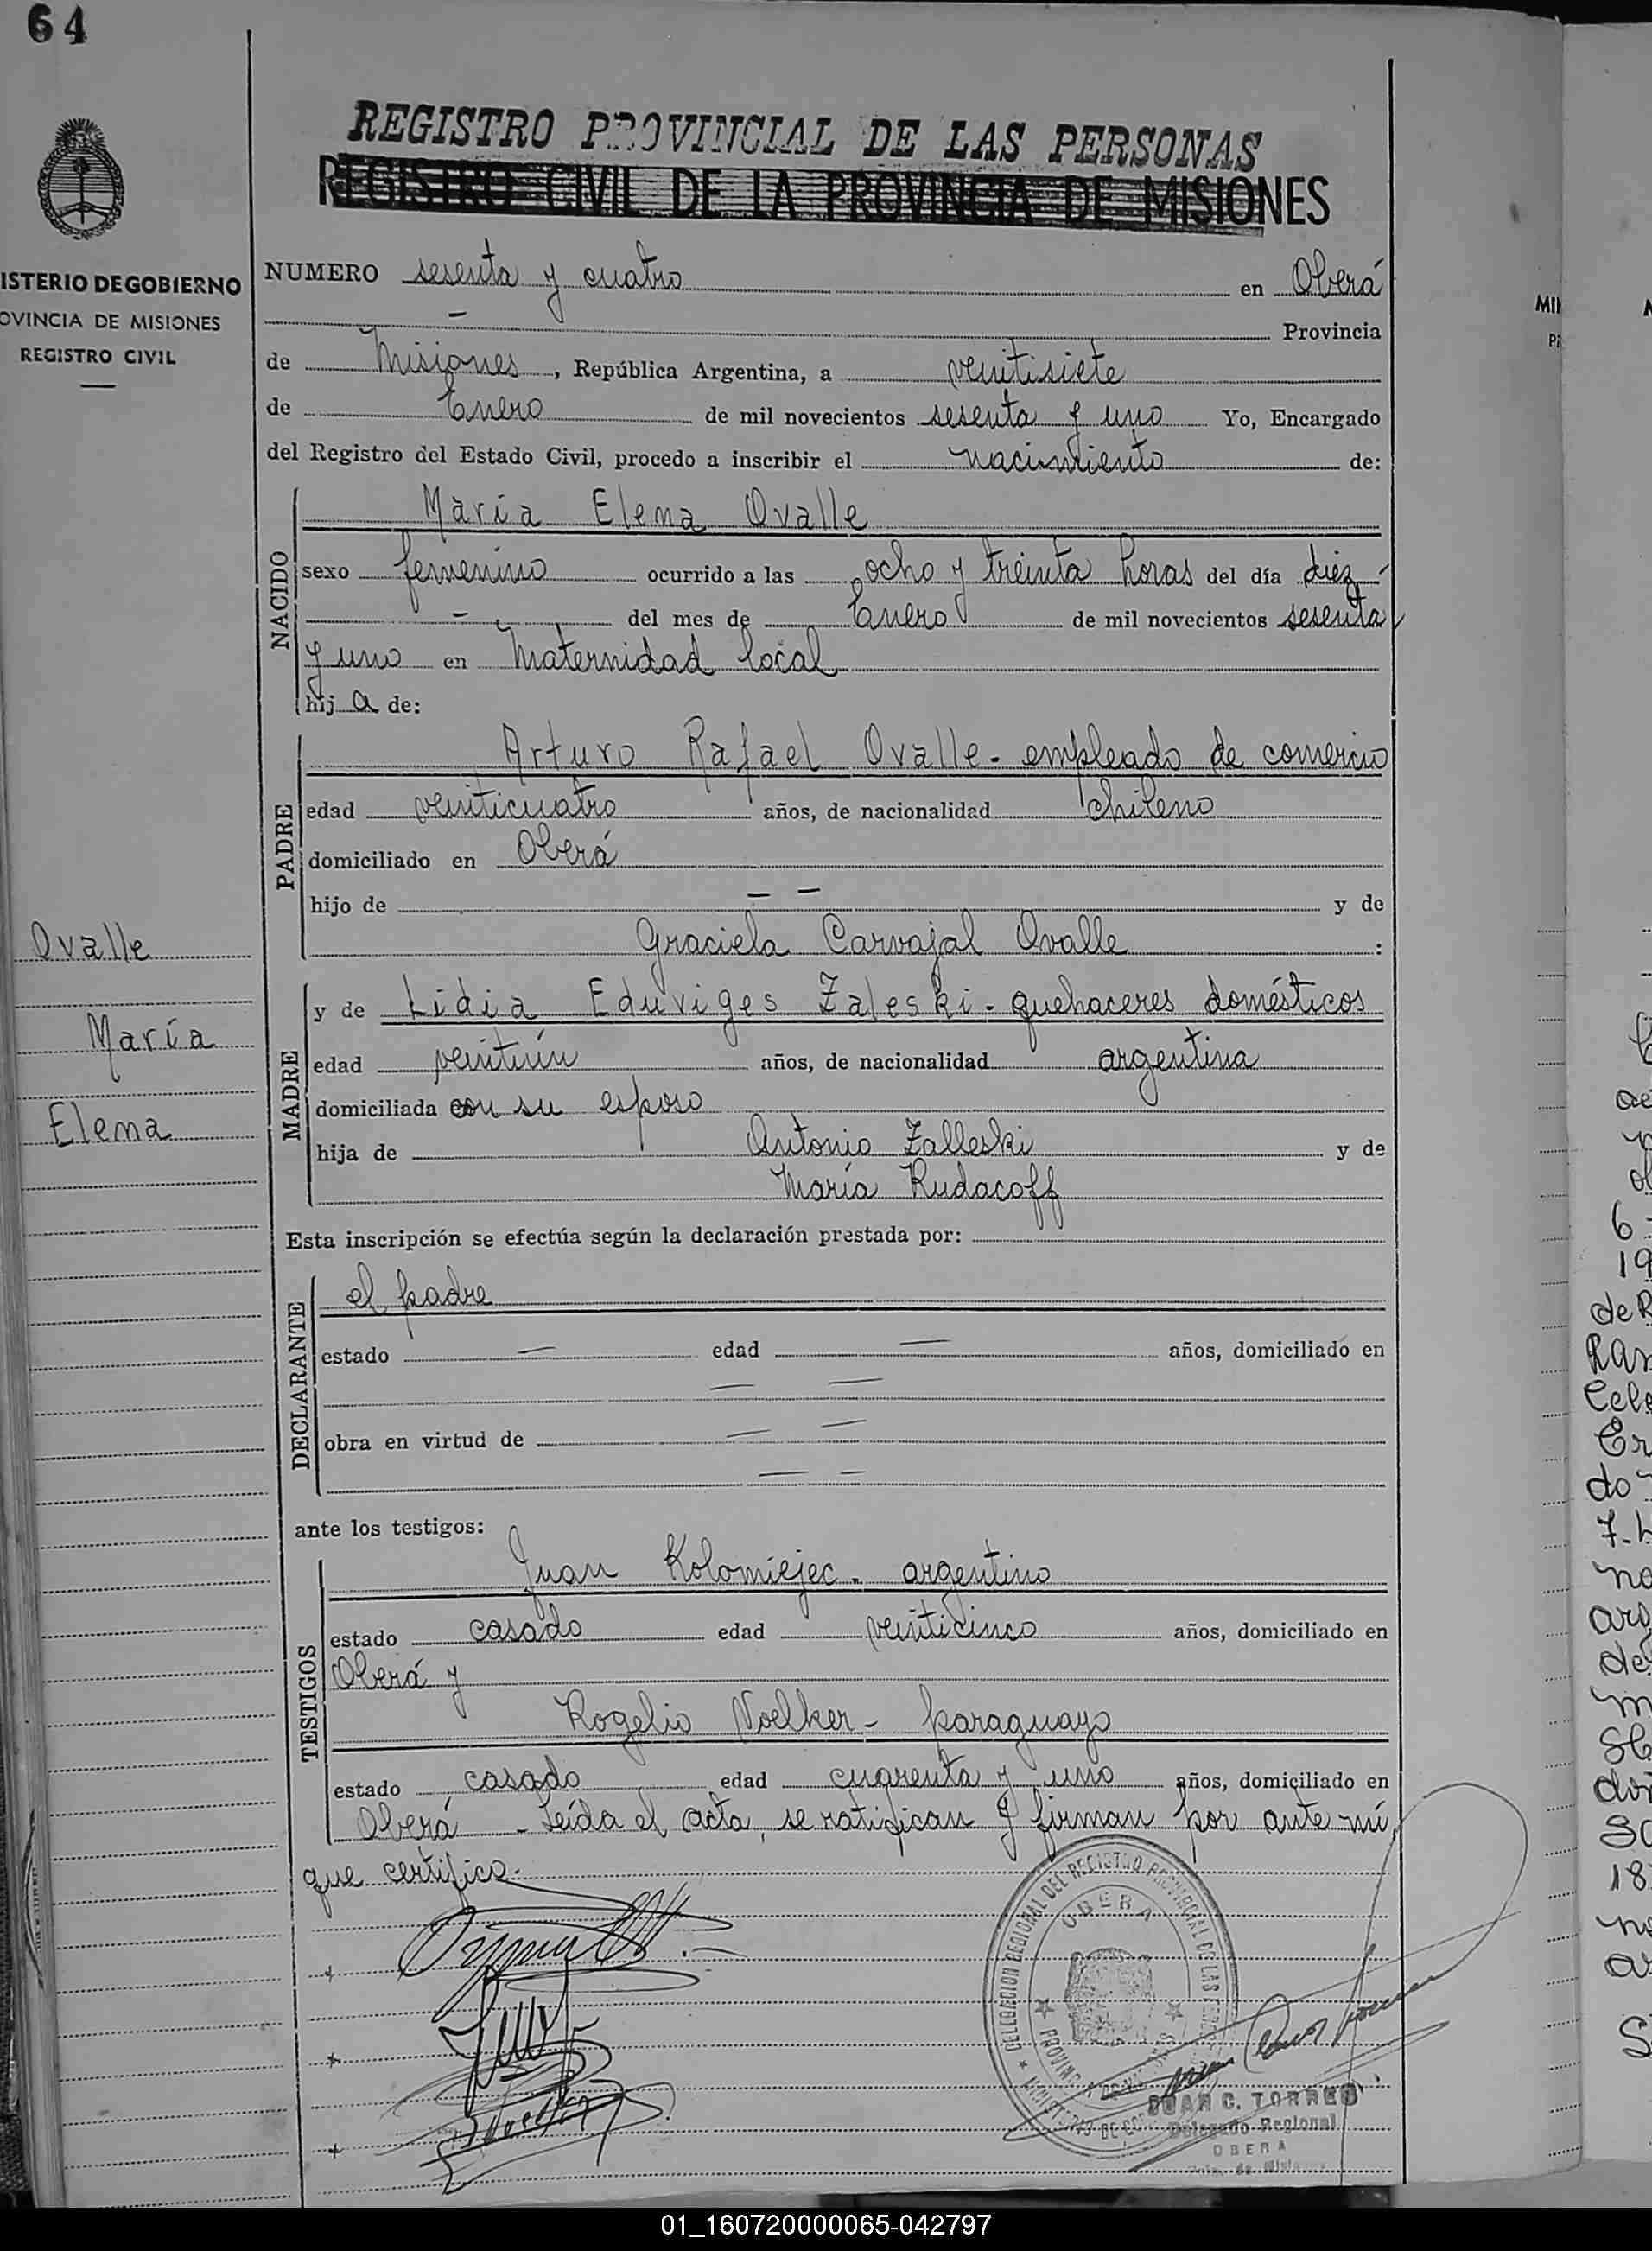 64
REGISTRO PROVINCIAL DE LAS PERSONAS
REGISTRO CIVIL DE LA PROVINCIA DE MISIONES
ISTERIO DE GOBIERNO
OVINCIA DE MISIONES
REGISTRO CIVIL
NUMERO sesenta y cuatro en Oberá
Provincia
de Misiones, República Argentina, a veintisiete
de Enero de mil novecientos sesenta y uno Yo, Encargado
del Registro del Estado Civil, procedo a inscribir el nacimiento de:
NACIDO
María Elena Ovalle
sexo femenino ocurrido a las ocho y treinta horas del día diez
del mes de Enero de mil novecientos sesenta
y uno en Maternidad local
hij a de:
PADRE
Arturo Rafael Ovalle - empleado de comercio
edad veinticuatro años, de nacionalidad chileno
domiciliado en Oberá
hijo de — — y de
Graciela Carvajal Ovalle :
Ovalle
María
Elena
MADRE
y de Lidia Eduviges Zaleski - quehaceres domésticos
edad veintiún años, de nacionalidad argentina
domiciliada con su esposo
hija de Antonio Zalleski y de
María Rudacoff
Esta inscripción se efectúa según la declaración prestada por:
DECLARANTE
el padre
estado — edad — años, domiciliado en
— —
obra en virtud de — —
— —
ante los testigos:
TESTIGOS
Juan Kolomiejec - argentino
estado casado edad veinticinco años, domiciliado en
Oberá y
Rogelio Voelker - paraguayo
estado casado edad cuarenta y uno años, domiciliado en
Oberá - Leída el acta, se ratifican y firman por ante mí
que certifico.-
DELEGACION REGIONAL DEL REGISTRO PROVINCIAL DE LAS
OBERA
JUAN C. TORRES
Delegado Regional
OBERA
01_160720000065-042797